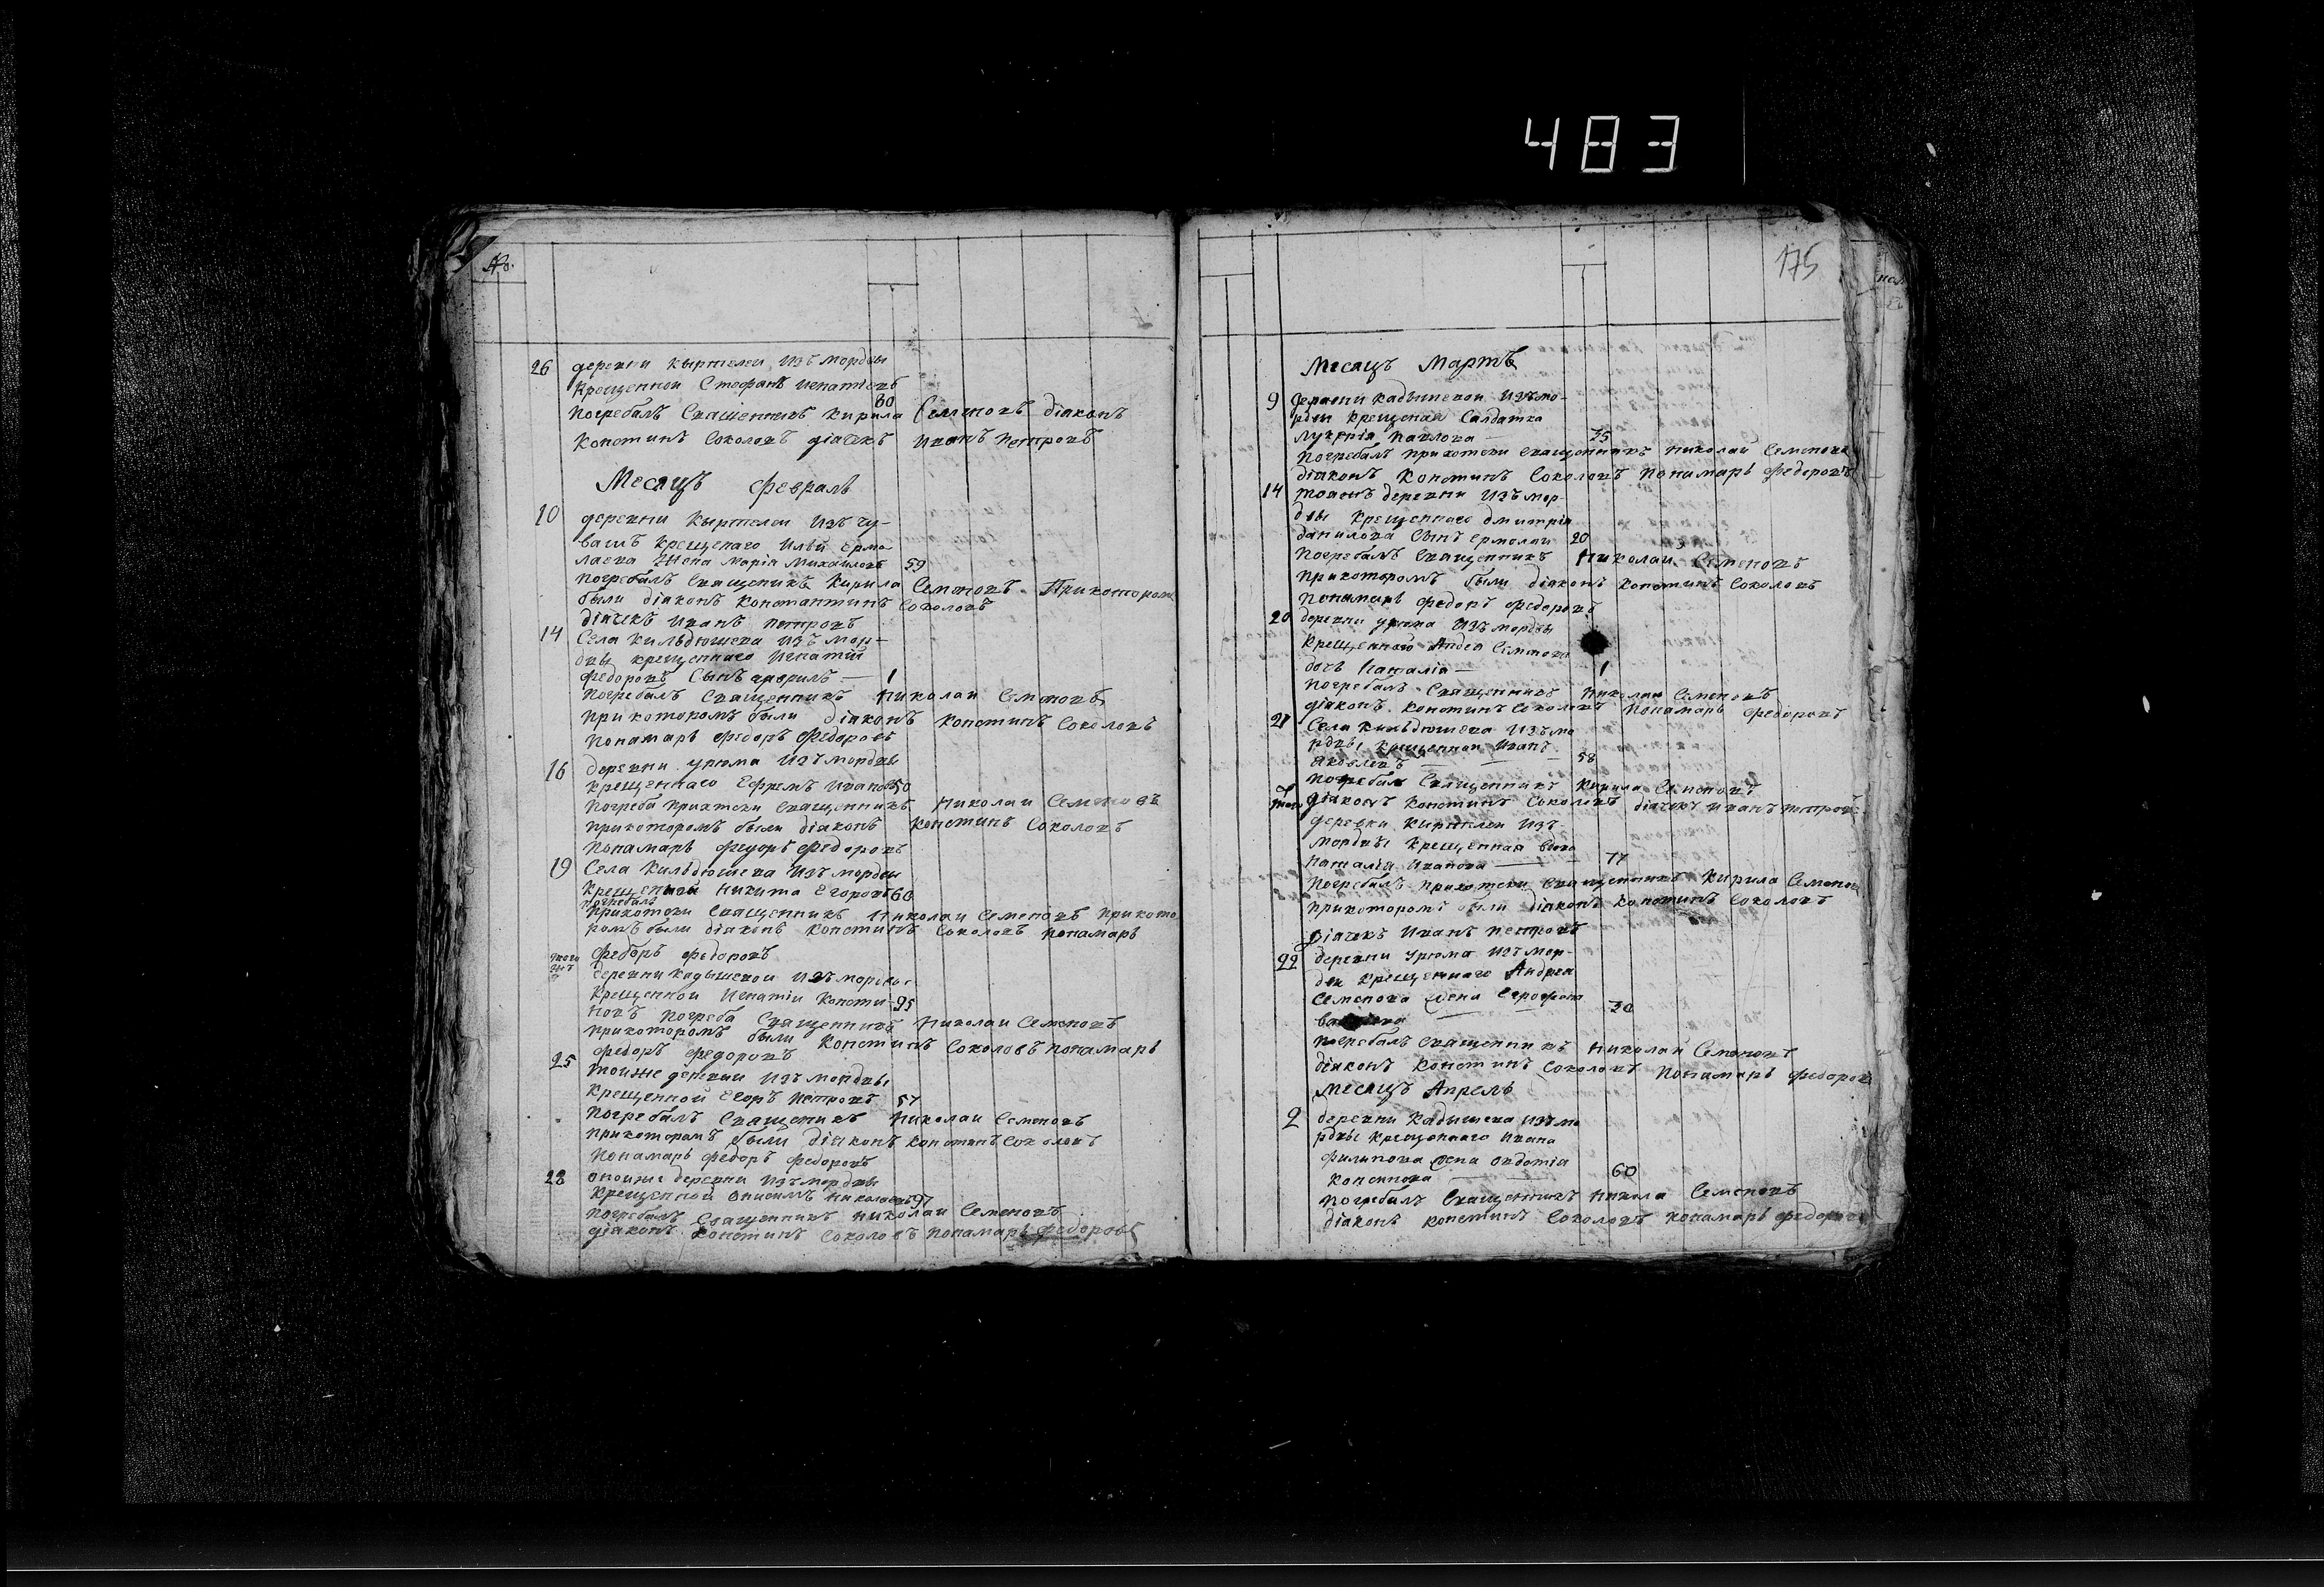 483
175
№.
26 деревни Кыртелеи изъ мордвы
крещенной Стефанъ Игнатіевъ
80
погребалъ Священникъ Кирила Семеновъ діаконъ
Констинъ Соколовъ діячекъ Иванъ Петровъ
Месяцъ февраль
10 деревни Кыртелеи изъ чу-
вашъ крещенаго Ильи Ермо
лаева жена Марія Михаилова 59
погребалъ Священикъ Кирила Семеновъ. При котором
были діаконъ Константинъ Соколовъ
діячекъ Иванъ Петровъ
14 Села Кильдюшева изъ мор-
двы крещеннаго Игнатій
Федоровъ Сынъ Гаврилъ — 1
погребалъ Священникъ Николаи Семеновъ
при которомъ были діаконъ Констинъ Соколовъ
пономарь Федоръ Федоровъ
16 деревни Урюма изъ мордвы
крещеннаго Ефремъ Ивановъ 50
Погреба прихтски Священникъ Николаи Семеновъ
прикоторомъ были діаконъ Констинъ Соколовъ
Понамарь Федоръ Федоровъ
19 Села Кильдюшева изъ мордвы
крещенной Никита Егоровъ 60
погребалъ
прихотски Священникъ Николаи Семеновъ прикото
ромъ были діаконъ Констинъ Соколовъ понамарь
Федоръ Федоровъ
того деревни Кадышевой изъ мордвы
крещенной Игнатіи Консти- 95
новъ погреба Священникъ Николаи Семеновъ
прикоторомъ были Констинъ Соколовъ понамарь
Федоръ Федоровъ
25 тоиже деревни изъ мордвы
крещенной Егоръ Петровъ 57
погребалъ Священикъ Николаи Семеновъ
прикоторомъ были діаконъ Констинъ Соколовъ
понамарь Федоръ Федоровъ
28 оноиже деревни изъ мордвы
крещенной Онисимъ Николаевъ 97
погребалъ Священникъ Николаи Семеновъ
діаконъ Констинъ Соколовъ понамарь Федоровъ
Месяцъ Мартъ
9 деревни Кадышевои изъ мо-
рдвы крещеная Салдатка
Лукерія Павлова — 35
погребалъ прихотски священникъ Николаи Семеновъ
діаконъ Констинъ Соколовъ понамарь Федоровъ
14 деревни изъ мор-
двы крещеннаго Дмитрія
Данилова Сынъ Ермолаи 20
погребалъ Священникъ Николаи Семеновъ
прикоторомъ были діаконъ Констинъ Соколовъ
понамарь Федоръ Федоровъ
20 деревни Урюма изъ мордвы
крещенного Андея Семенова
дочь Наталіа — 1
погребалъ Священникъ Николаи Семеновъ
діаконъ Констинъ Соколовъ Понамарь Федоровъ
21 Села Кильдюшева изъ мо
рдвы крещенной Иванъ
Яковлевъ — — — 58
погребал Священникъ Кирила Семеновъ
діаконъ Констинъ Соколовъ діячекъ Иванъ Петровъ
того деревни Киртелеи изъ
мордвы крещенная вдова
Наталія Иванова — 77
погребалъ прихотски Священникъ Кирила Семенов
прикоторомъ были діаконъ Констинъ Соколовъ
Діячекъ Иванъ Петровъ
22 деревни Урюма изъ мор-
двы крещеннаго Андрея
Семенова жена
30
погребалъ Священникъ Николай Семеновъ
діаконъ Констинъ Соколовъ Понамарь Федоров
Месяцъ Апрель
2 деревни Кадышева изъ мо
рдвы крещеннаго Ивана
Филипова жена Овдотіа
60
погребалъ Священникъ Никола Семеновъ
діаконъ Констинъ Соколовъ понамарь Федоровъ